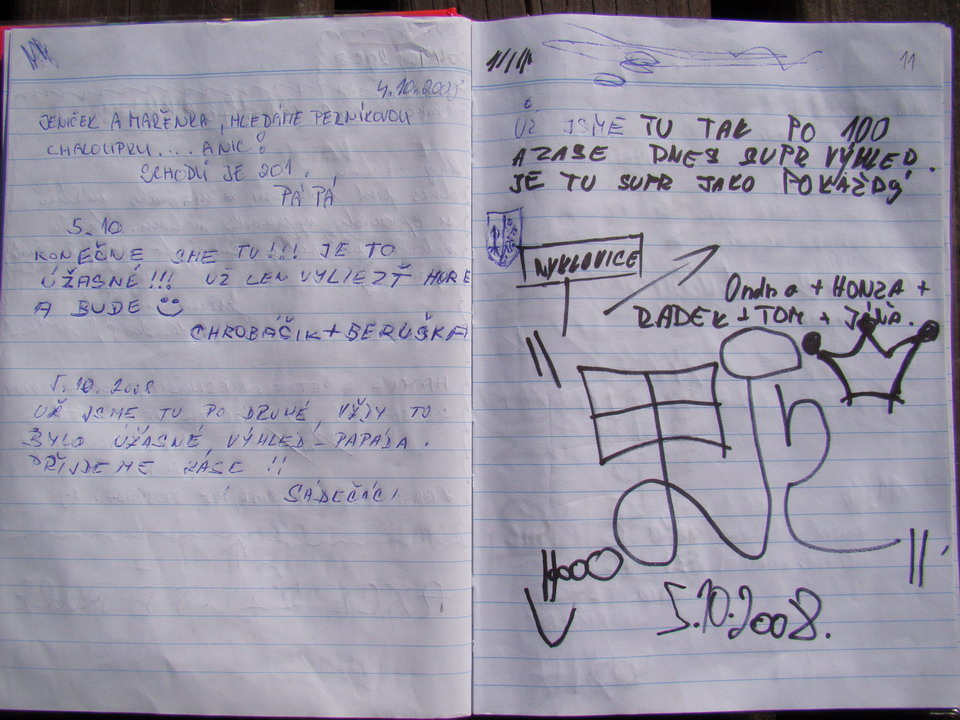 4.10.2008
JENIČEK A MAŘENKA, HLEDÁME PERNÍKOVOU
CHALOUPKU.... A NIC!
SCHODŮ JE 201.
PÁ PÁ
5.10
KONEČNE SME TU!!! JE TO
ÚŽASNÉ!!! UŽ LEN VYLIEZŤ HORE
A BUDE
CHROBÁČIK+BERUŠKA
5.10.2008
UŽ JSME TU PO DRUHÉ VŽDY TO
BYLO ÚŽASNÉ, VÝHLED - PAPÁDA.
PŘIJDEME ZASE!!
SÁDEČÁCI
11
UŽ JSME TU TAK PO 100
A ZASE DNES SUPR VÝHLED.
JE TU SUPR JAKO POKAŽDÝ
NYKLOVICE
Ondra + HONZA +
RADEK + TOM + JÁŇA.
5.10.2008.